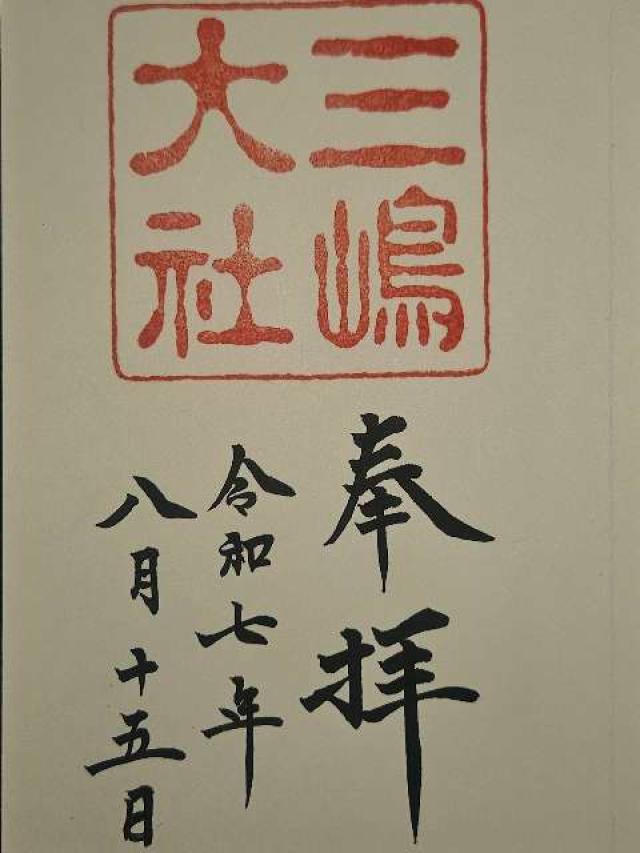 三嶋
大社
奉拝
令和七年
八月十五日